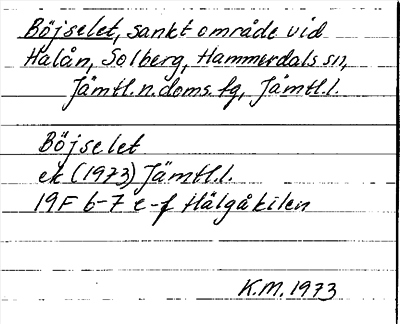 Böjselet, sankt område vid
Halån, Solberg, Hammerdals sn,
Jämtl.n.doms.fg, Jämtl.l.
Böjselet
ek (1973) Jämtl.l.
19F 6-7 e-f Hälgåkilen
K.M. 1973